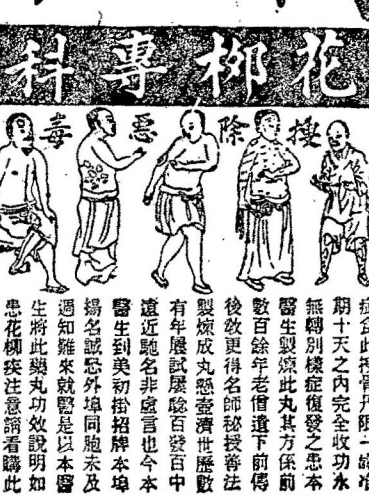 花栁專科
搜除惡毒
症食此搜骨丹限一
期十天之內完全收功永
無轉別樣症復發之患本
醫生製煉此丸其方係前
數百餘年老僧遺下前傳
後更得名師秘授善法
製煉成丸懸壺濟世歷數
有年屢試屢驗百發百中
遠近馳名非虛言也今本
醫生到美初掛招牌本埠
揚名誠恐外埠同胞未及
週知難來就醫是以本醫
生將此藥丸功效說明如
患花柳疾注意請看購此